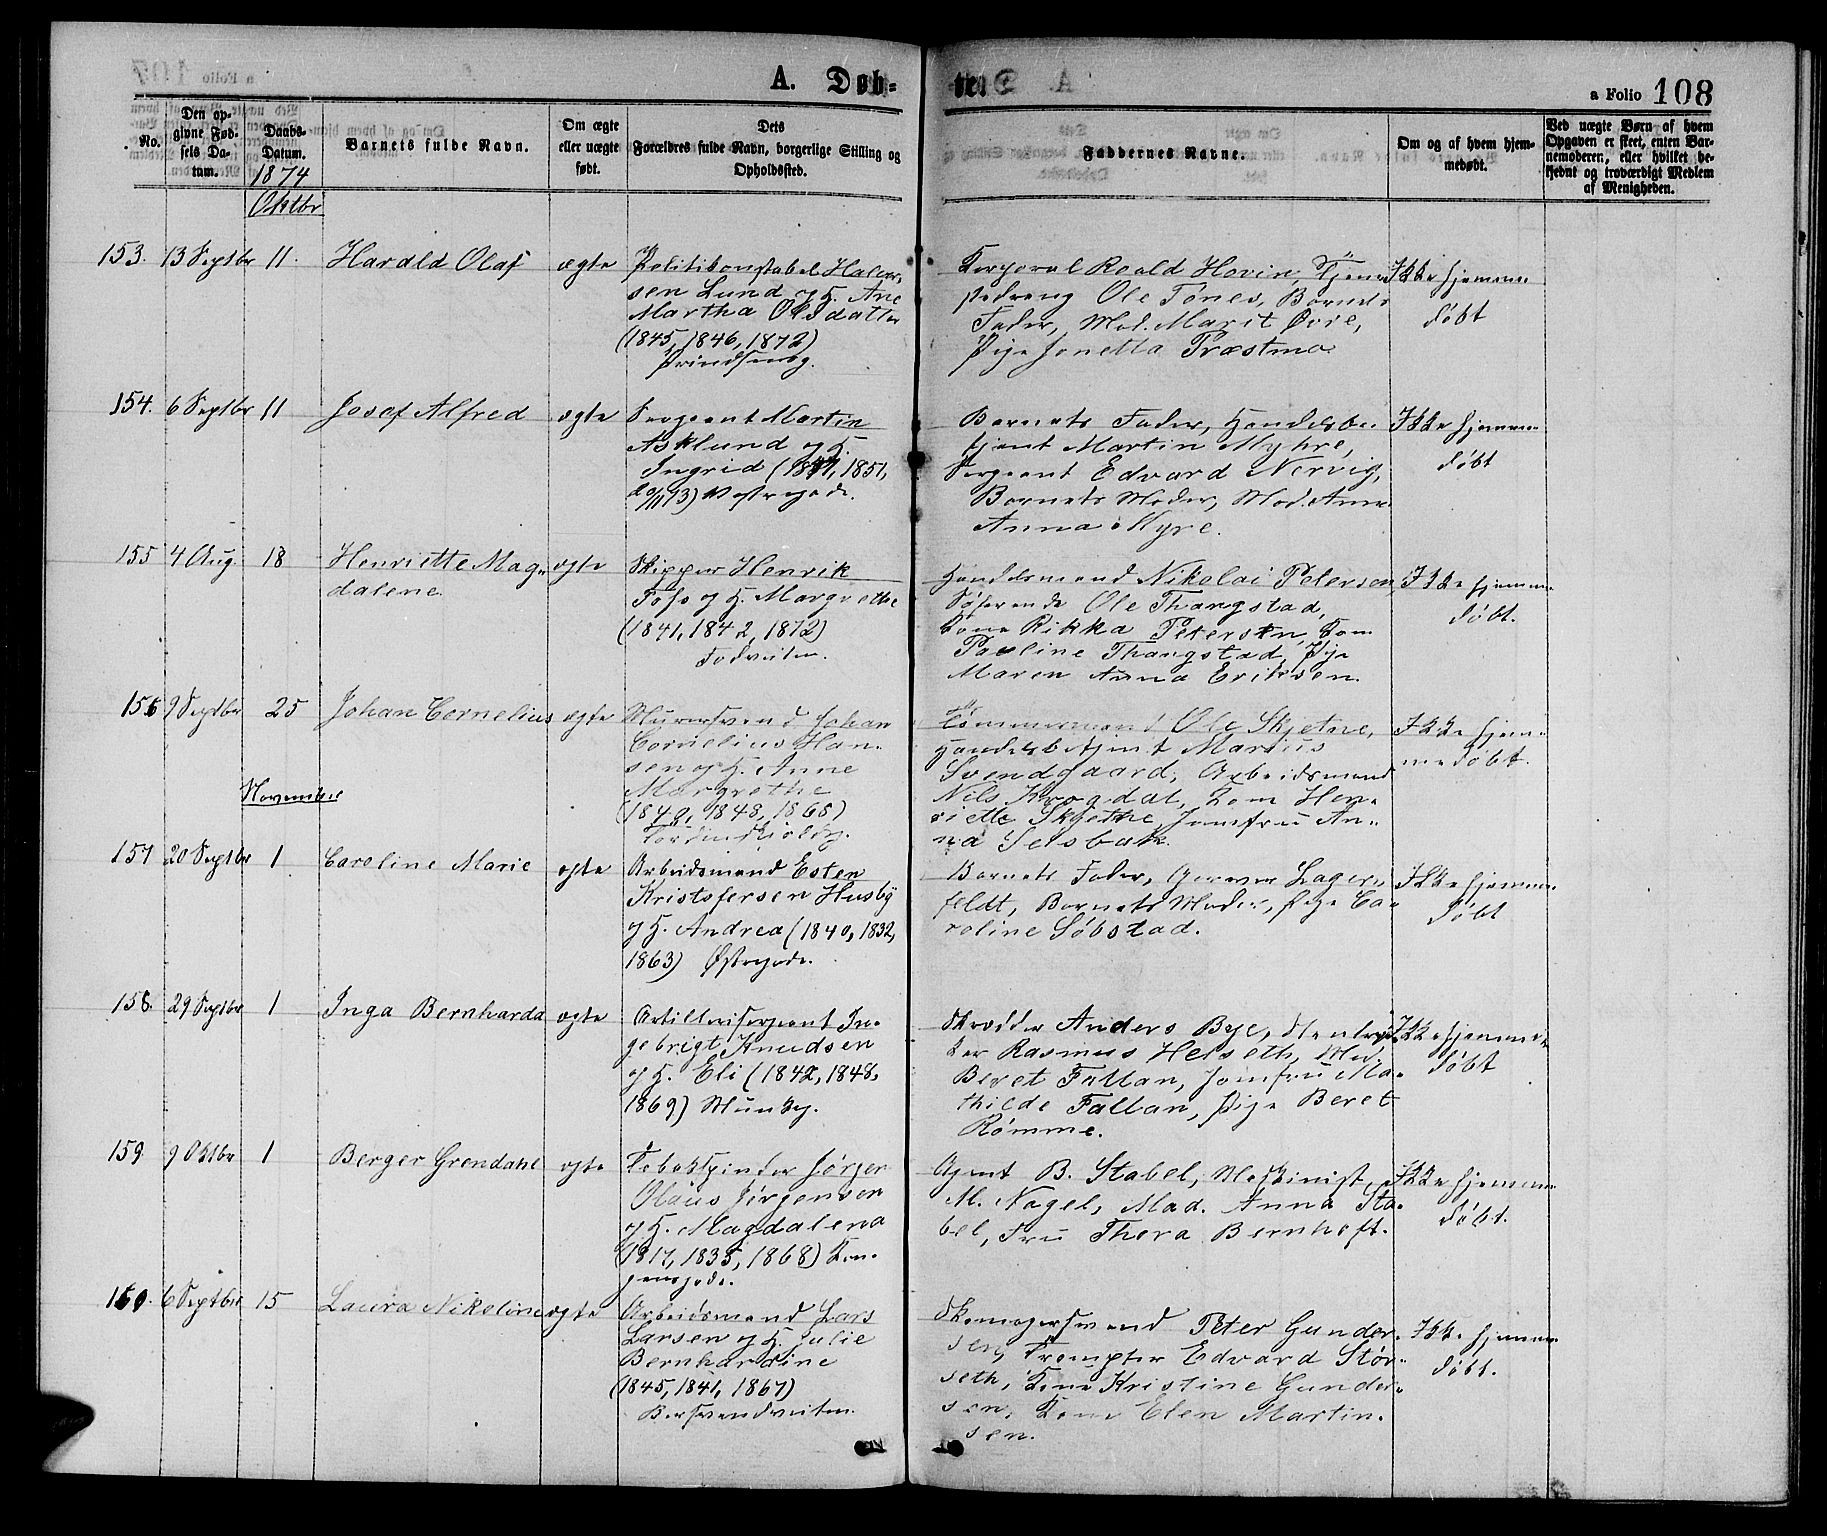 A. Døb-
te.
a Folio 108
No.
Den op-
givne Fød-
sels Da-
tum.
Daabs-
Datum.
1874
Oktbr
Barnets fulde Navn.
Om ægte
eller uægte
født.
Dets
Forældres fulde Navn, borgerlige Stilling og
Opholdssted.
Faddernes Navne.
Om og af hvem hjem-
medøbt.
Ved uægte Børn af hvem
Opgaven er skeet, enten Bar-
nemoderen, eller hvilket be-
kjendt og troværdigt Medlem
af Menigheden.
153. 13 Septbr 11. Harald Olaf ægte
Politikonstabel Halvor-
sen Lund og H. Ane
Martha Olsdatter
(1845, 1846, 1872)
Prindsensg.
Korporal Roald Hovin, Tjene-
stedreng Ole Tønes, Barnets
Fader, Mad. Marit Øvre,
Pige Jonetta Træstmo
Ikke hjemme-
døbt
154. 6 Septbr 11 Josef Alfred ægte
Sergeant Martin
Asklund og H.
Ingrid (1847, 1851,
73) Vestregade.
Barnets Fader, Handelsbe-
tjent Martin Myhre,
Sergeant Edvard Nervig,
Barnets Moder, Mad. Ane
Anna Myre.
Ikke hjemme-
døbt
155 4 Aug. 18 Henriette Mag-
dalene.
ægte
Skipper Henrik
Foss og H. Margrethe
(1841, 1842, 1872)
Fodveiten.
Handelsmand Nikolai Petersen,
Søfarende Ole Thangstad,
Kone Rikka Petersen, Kone
Pauline Thangstad, Pige
Maren Anna Eriksen.
Ikke hjemme-
døbt.
156 9 Septbr 25 Johan Cornelius ægte
Murersvend Johan
Cornelius Han-
sen og H. Anne
Margrethe
(1849, 1848, 1868)
Tordenskioldsg.
Tømmermand Ole Skjetne,
Handelsbetjent Martius
Svendgaard, Arbeidsmand
Nils Krogdal, Kone Hen-
riette Skjetne, Jomfru An-
na Selsbak.
Ikke hjem-
medøbt.
November
157 20 Septbr 1 Caroline Marie ægte
Arbeidsmand Esten
Kristofersen Husby
og H. Andrea (1840, 1832,
1863) Østregade.
Barnets Fader, Garver Lager-
feldt, Barnets Moder, Pige Ca-
roline Søbstad.
Ikke hjemme-
døbt
158. 29 Septbr 1 Inga Bernharda ægte
Artillerisergeant In-
gebrigt Knudsen
og H. Eli (1842, 1848,
1869) Munkg.
Skrædder Anders Bye, Stentryk-
ker Rasmus Helseth, Mad.
Beret Fallan, Jomfru Ma-
thilde Fallan, Pige Beret
Rømme.
Ikke hjemme-
døbt
159 9 Oktbr 1 Berger Grendahl ægte
Tobakspinder Jørgen
Olaus Jørgensen
og H. Magdalena
(1817, 1835, 1868) Kon-
gensgade.
Agent B. Stabel, Maskinist
M. Nagel, Mad. Anna Sta-
bel, Fru Thora Bernhoft.
Ikke hjemme-
døbt.
160. 6 Septbr 15 Laura Nikoline ægte
Arbeidsmand Lars
Larsen og H. Julie
Bernhardine
(1845, 1841, 1867)
Bersvendveiten.
Skomagersvend Peter Gunder-
sen, Trompter Edvard Stør-
seth, Kone Kristine Gunder-
sen, Kone Elen Martin-
sen.
Ikke hjemme-
døbt.